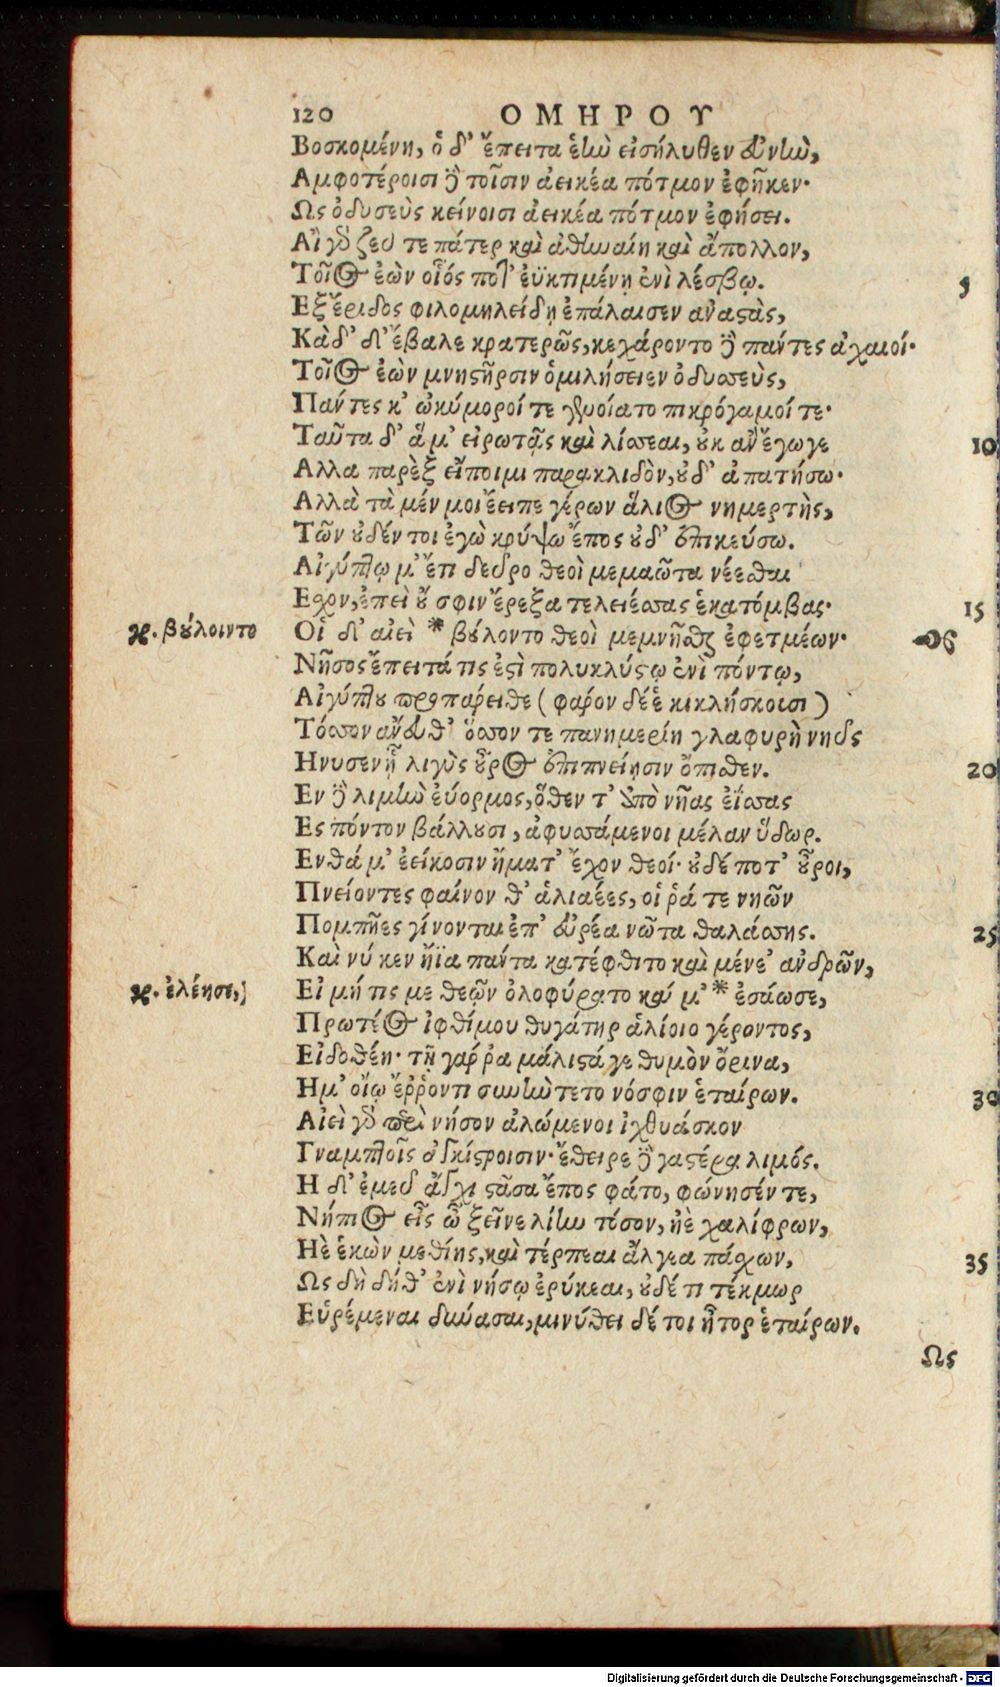 120 ΟΜΗΡΟΥ
Βοσκομένη, ὁ δ' ἔπειτα ἑὴν εἰσήλυθεν εὐνὴν,
Αμφοτέροισι δὲ τοῖσιν ἀεικέα πότμον ἐφῆκεν·
Ως ὀδυσεὺς κείνοισι ἀεικέα πότμον ἐφήσει.
Αἲ γὰρ ζεῦ τε πάτερ καὶ ἀθηναίη καὶ ἄπολλον,
Τοῖος ἐὼν οἷός ποτ' ἐϋκτιμένῃ ἐνὶ λέσβῳ. 5
Εξ ἔριδος φιλομηλείδῃ ἐπάλαισεν ἀναστὰς,
Κὰδ' δ' ἔβαλε κρατερῶς, κεχάροντο δὲ πάντες ἀχαιοί·
Τοῖος ἐὼν μνηστῆρσιν ὁμιλήσειεν ὀδυσσεὺς,
Πάντες κ' ὠκύμοροί τε γενοίατο πικρόγαμοί τε·
Ταῦτα δ' ἅ μ' εἰρωτᾷς καὶ λίσσεαι, οὐκ ἂν ἔγωγε 10
Αλλα παρὲξ εἴποιμι παρακλιδὸν, οὐδ' ἀπατήσω·
Αλλὰ τὰ μέν μοι ἔειπε γέρων ἅλιος νημερτὴς,
Τῶν οὐδέν τοι ἐγὼ κρύψω ἔπος οὐδ' ἐπικεύσω.
Αἰγύπτῳ μ' ἔτι δεῦρο θεοὶ μεμαῶτα νέεσθαι
Εσχον, ἐπεὶ οὔ σφιν ἔρεξα τελειέσσας ἑκατόμβας· 15
γρ. βούλοιντο Οἱ δ' αἰεὶ * βούλοντο θεοὶ μεμνῆσθαι ἐφετμέων·
Νῆσος ἔπειτά τις ἐστὶ πολυκλύστῳ ἐνὶ πόντῳ,
Αἰγύπτου προπάρειθε (φάρον δέ ἑ κικλήσκουσι)
Τόσσον ἄνευθ' ὅσσον τε πανημερίη γλαφυρὴ νηῦς
Ηνυσεν ᾗ λιγὺς οὖρος ἐπιπνείῃσιν ὄπισθεν. 20
Εν δὲ λιμὴν εὔορμος, ὅθεν τ' ἀπὸ νῆας ἐΐσσας
Ες πόντον βάλλουσι, ἀφυσσάμενοι μέλαν ὕδωρ.
Ενθά μ' ἐείκοσιν ἤματ' ἔχον θεοί· οὐδέ ποτ' οὖροι,
Πνείοντες φαίνον θ' ἁλιαέες, οἱ ῥά τε νηῶν
Πομπῆες γίνονται ἐπ' εὐρέα νῶτα θαλάσσης. 25
Καὶ νύ κεν ἤϊα πάντα κατέφθιτο καὶ μένε' ἀνδρῶν,
γρ. ἐλέησε, Εἰ μή τις με θεῶν ὀλοφύρατο καί μ' * ἐσάωσε,
Πρωτέος ἰφθίμου θυγάτηρ ἁλίοιο γέροντος,
Εἰδοθέη· τῇ γάρ ῥα μάλιστά γε θυμὸν ὄρινα,
Η μ' οἴῳ ἔῤῥοντι συνήντετο νόσφιν ἑταίρων. 30
Αἰεὶ γὰρ περὶ νῆσον ἀλώμενοι ἰχθυάσκον
Γναμπτοῖς ἀγκίστροισιν· ἔθειρε δὲ γαστέρα λιμός.
Η δ' ἐμεῦ ἄγχι στᾶσα ἔπος φάτο, φώνησέν τε,
Νήπιος εἶς ὦ ξεῖνε λίην τόσον, ἠὲ χαλίφρων,
Ηὲ ἑκὼν μεθίης, καὶ τέρπεαι ἄλγεα πάσχων, 35
Ως δὴ δήθ' ἐνὶ νήσῳ ἐρύκεαι, οὐδέ τι τέκμωρ
Εὑρέμεναι δύνασαι, μινύθει δέ τοι ἦτορ ἑταίρων.
Ως
Digitalisierung gefördert durch die Deutsche Forschungsgemeinschaft - DFG